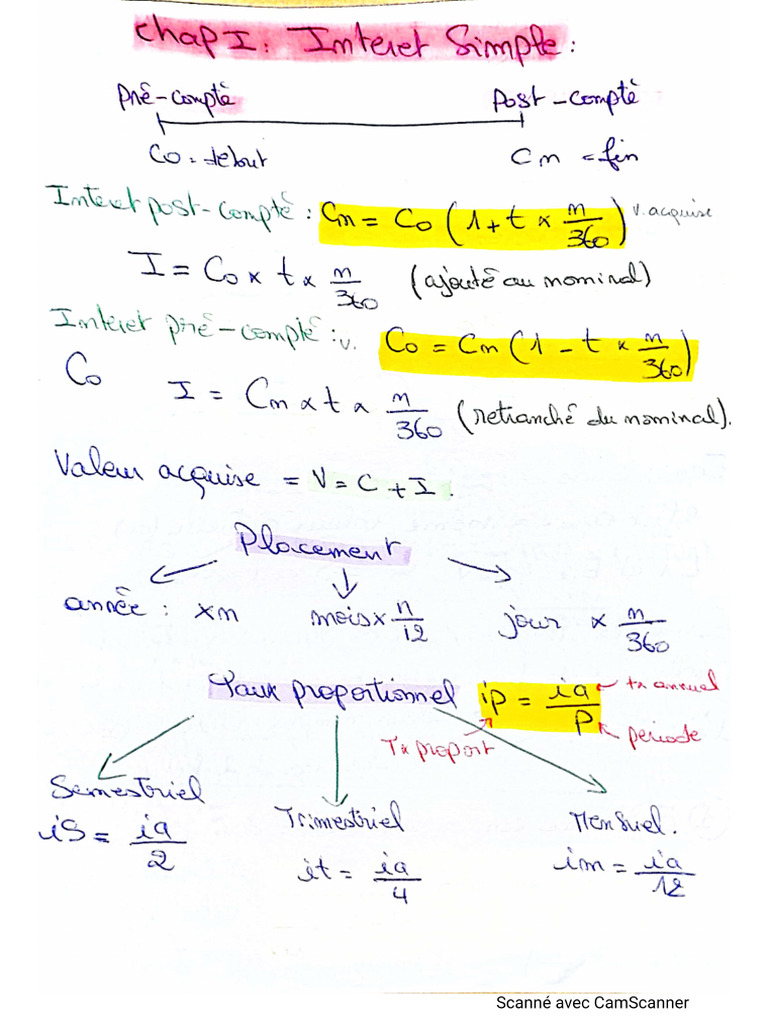 Chap I : Interet Simple :
Pré-compté Post-compté
Co = debut Cn = fin
Interet post-compté : Cn = Co (1 + t × n/360) v. acquise
I = Co × t × n/360 (ajouté au nominal)
Interet pré-compté : v. Co = Cn (1 - t × n/360)
Co I = Cn × t × n/360 (retranché du nominal).
Valeur acquise = V = C + I.
Placement
année : × n mois × n/12 jour × n/360
Taux proportionnel ip = ia/P tx annuel
Tx proport periode
Semestriel Trimestriel Mensuel.
is = ia/2 it = ia/4 im = ia/12
Scanné avec CamScanner